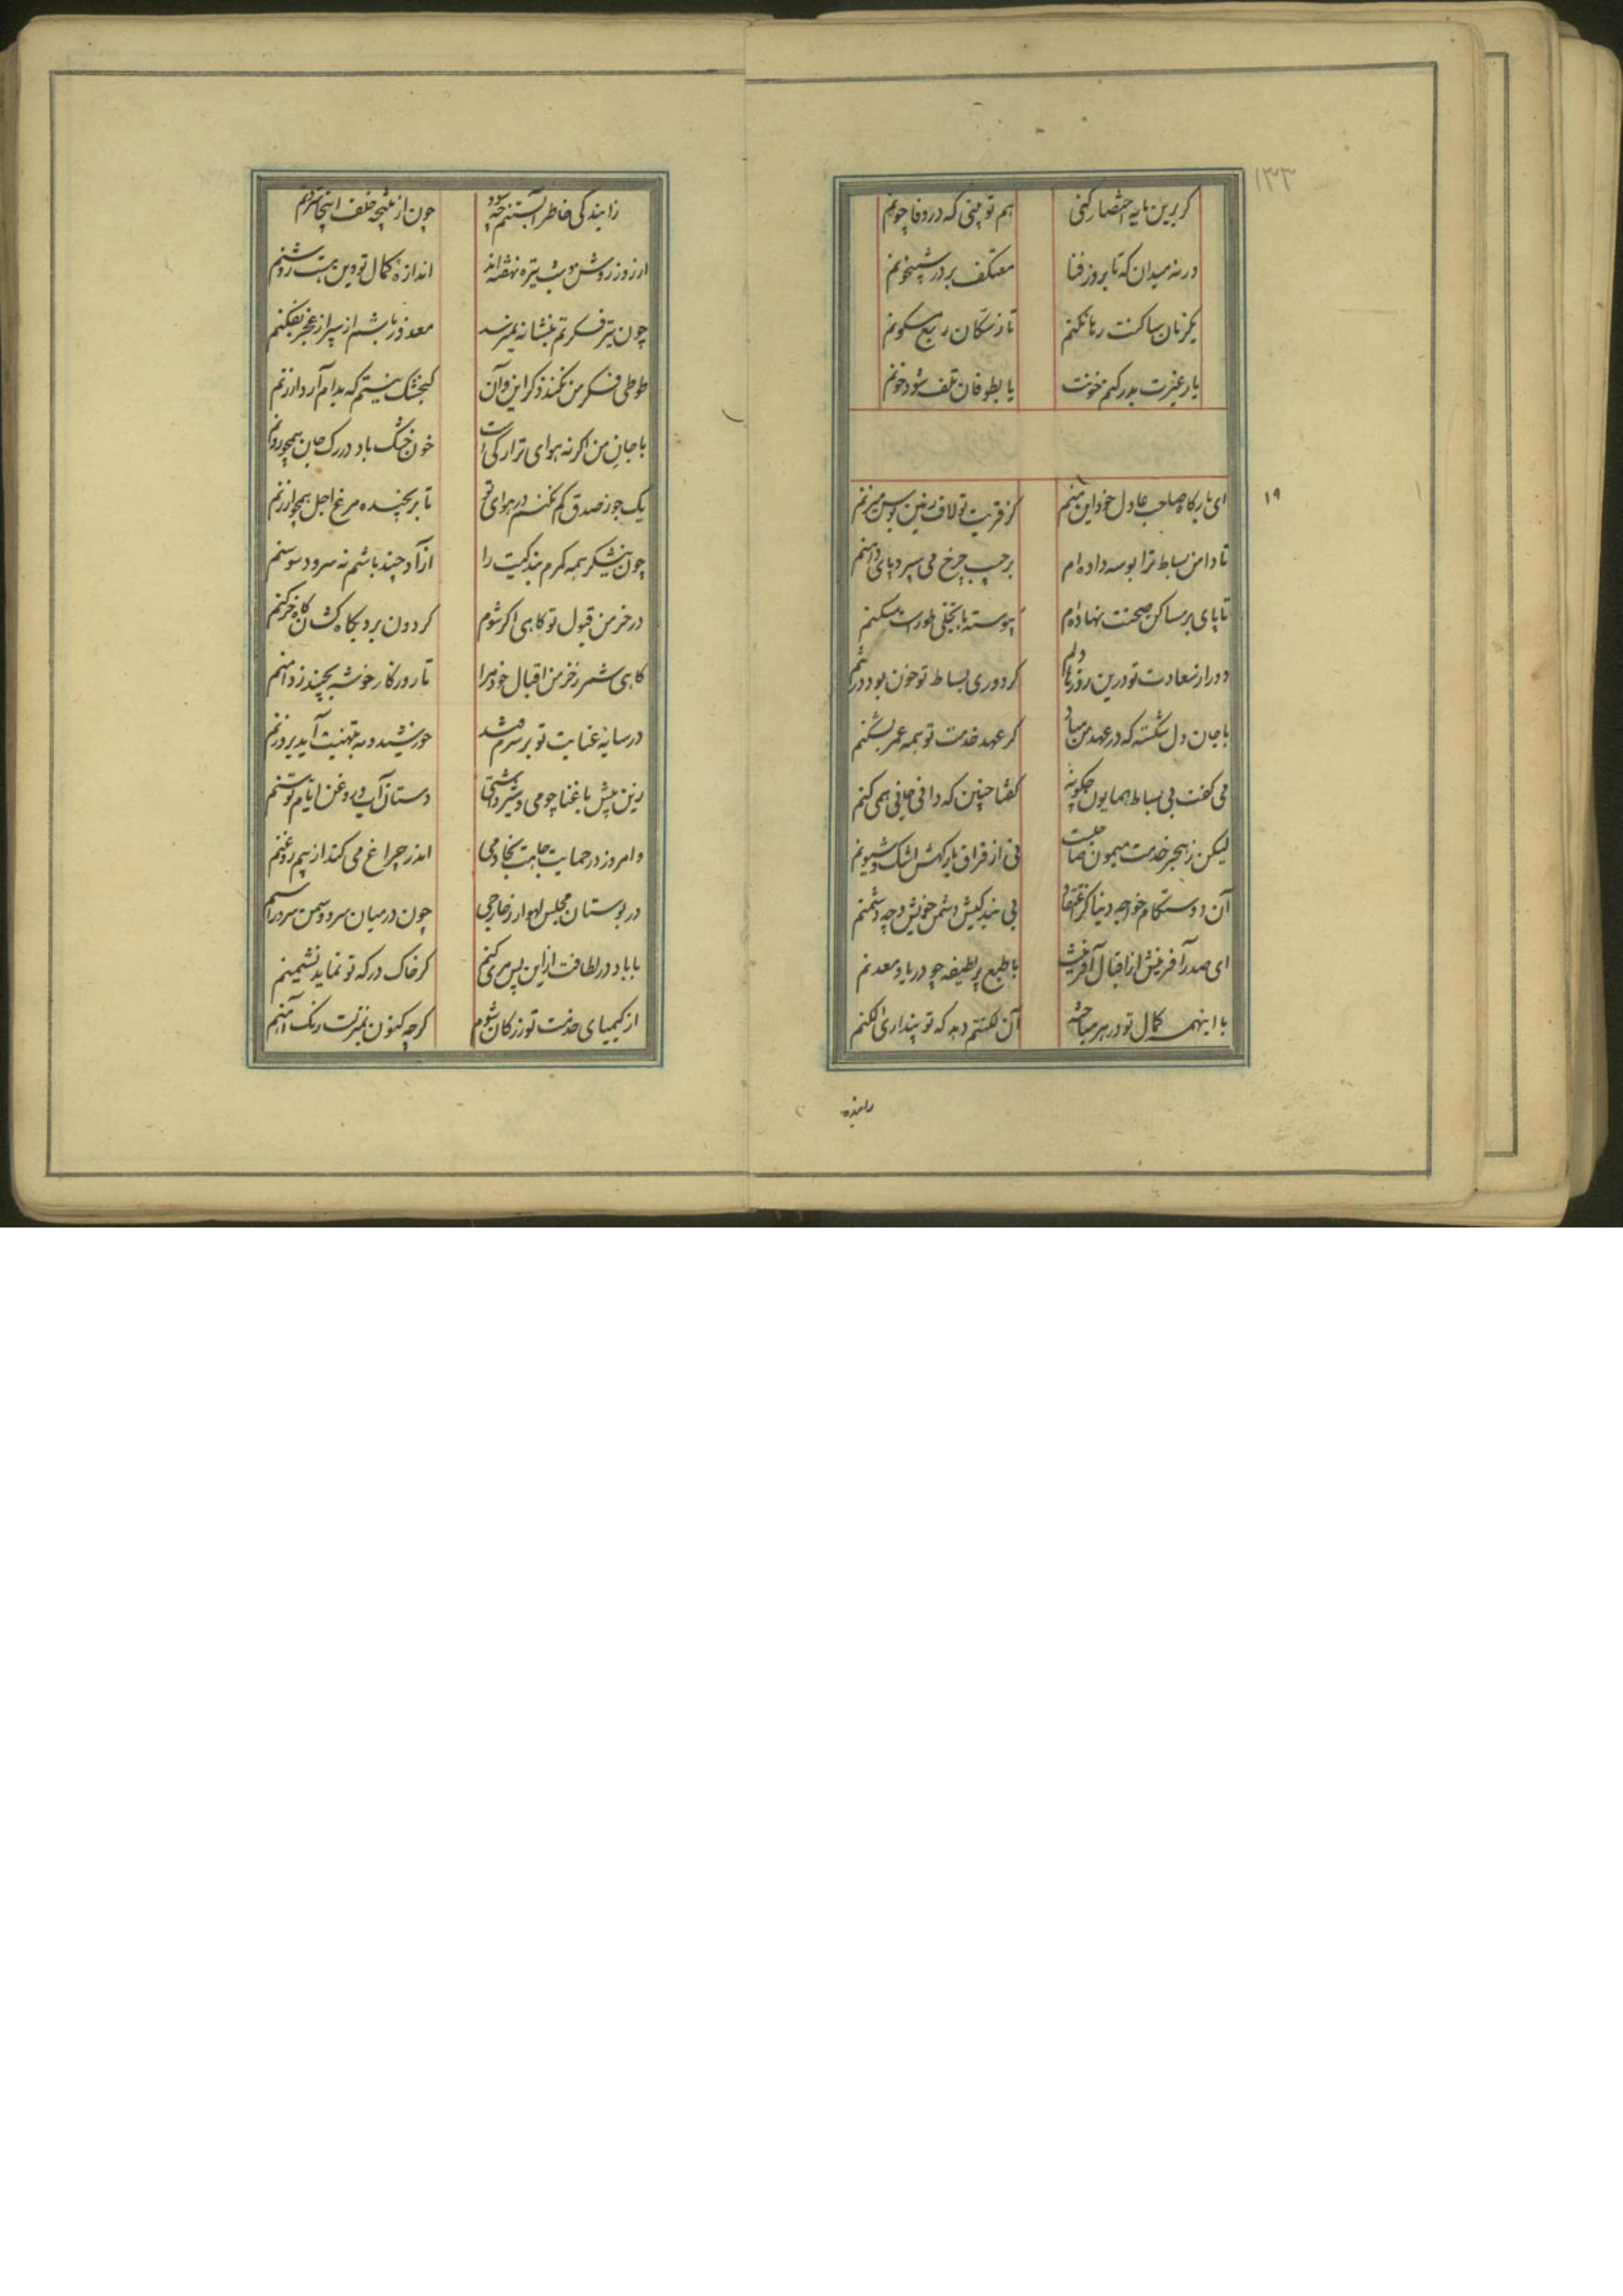 ۱۳۳
کر برین مایه اختصار کنی هم تو بینی که در وفا چونم
ورنه میدان که تا بروز فنا معتکف بر در شبیخونم
یکزمان ساکنت رها نکنم تا ز سکان ربع مسکونم
یا رغیرت بدر کنم خونت یا بطوفان تلف شود خونم
۱۹
ای بارکاه صاحب عادل خود این منم کز قربت تو لاف زمین بوس میزنم
تا دامن بساط ترا بوسه داده ام بر جیب چرخ می سپرد پای دامنم
تا پای بر مساکن صحنت نهاده ام پیوسته با تجلی طورست مسکنم
دور از سعادت تو درین روزها دلم کز دوری بساط تو خون بود در تنم
با جان دل شکسته که در عهد من مباد کر عهد خدمت تو همه عمر بشکنم
می کفت بی بساط همایون چکونه کفتا چنین که دانی جانی همی کنم
لیکن ز هجر خدمت میمون صاحبست نی از فراق بارکهش اشک و شیونم
آن دوستکام خواجه دنیا کز اعتقاد بی بندکیش دشمن خویش و چه دشمنم
ای صدر آفرینش از اقبال آفرینت با طبع پر لطیفه چو دریا و معدنم
با اینهمه کمال تو در هر مباحثه آن لکنتم دهد که تو پنداری الکنم
زاینده
زایندکی خاطر آبستنم چه سود چون از نتیجه خلف اینجا سترونم
از روز روشن و شب تیره نهفته اند اندازه کمال تو وین هست روشنم
چون تیر فکرتم بنشانه نمیرسد معذور باشم ار سپر از عجز بفکنم
طوطی فکر من نکند ذکر این و آن کنجشک نیستم که بدام آرد ارزنم
با جان من اکر نه هوای ترا رکی است خون خشک باد در رک جان همچو روینم
یک جو ز صدق کم نکنم در هوای تو تا بر نچیند مرغ اجل همچو ارزنم
چون نیشکر همه کمرم بندکیت را آزاد چند باشم نه سرو و سوسنم
در خرمن قبول تو کاهی اکر شوم کردون برد بکاه کشان کاه خرمنم
کاهی شمر ز خرمن اقبال خود مرا تا روزکار خوشه بچیند ز دامنم
در سایه عنایت تو بر سرم فتد خورشید و مه بتهنیت آید بروزنم
زین پیش با غنا چو می و شیر داشتی دستان آب و روغن ایام توسنم
و امروز در حمایت جاهت بخادمی اندر چراغ می کند از بیم روغنم
در بوستان مجلس لهو ار ز خارجی چون در میان سرو و سمن سرو راسنم
با باد در لطافت ازین پس مری کنم کر خاک درکه تو نماید نشیمنم
از کیمیای خدمت تو زر کان شوم کرچه کنون بمنزلت زنک آهنم